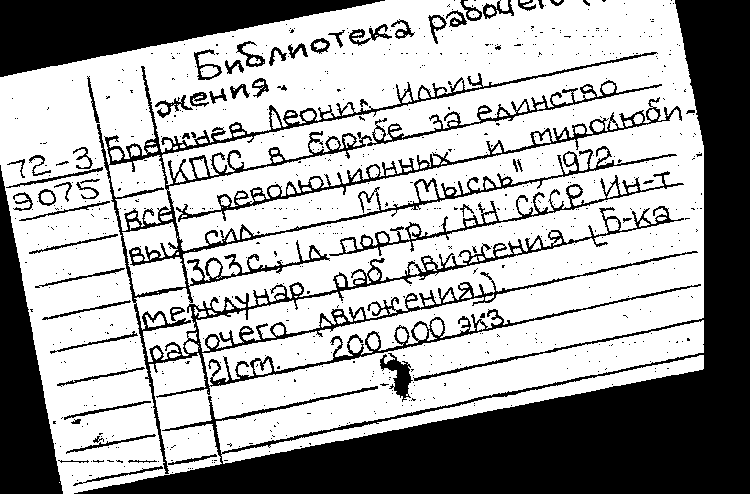 Библиотека рабочего
жения.
Брежнев, Леонид Ильич.
72-3
9075
КПСС в борьбе за единство
всех революционных и миролюби-
вых сил. М., „Мысль" 1972.
303с.; 1л. портр. (АН СССР. Ин-т
междунар. раб. движения. [Б-ка
рабочего движения]).
21см. 200 000 экз.